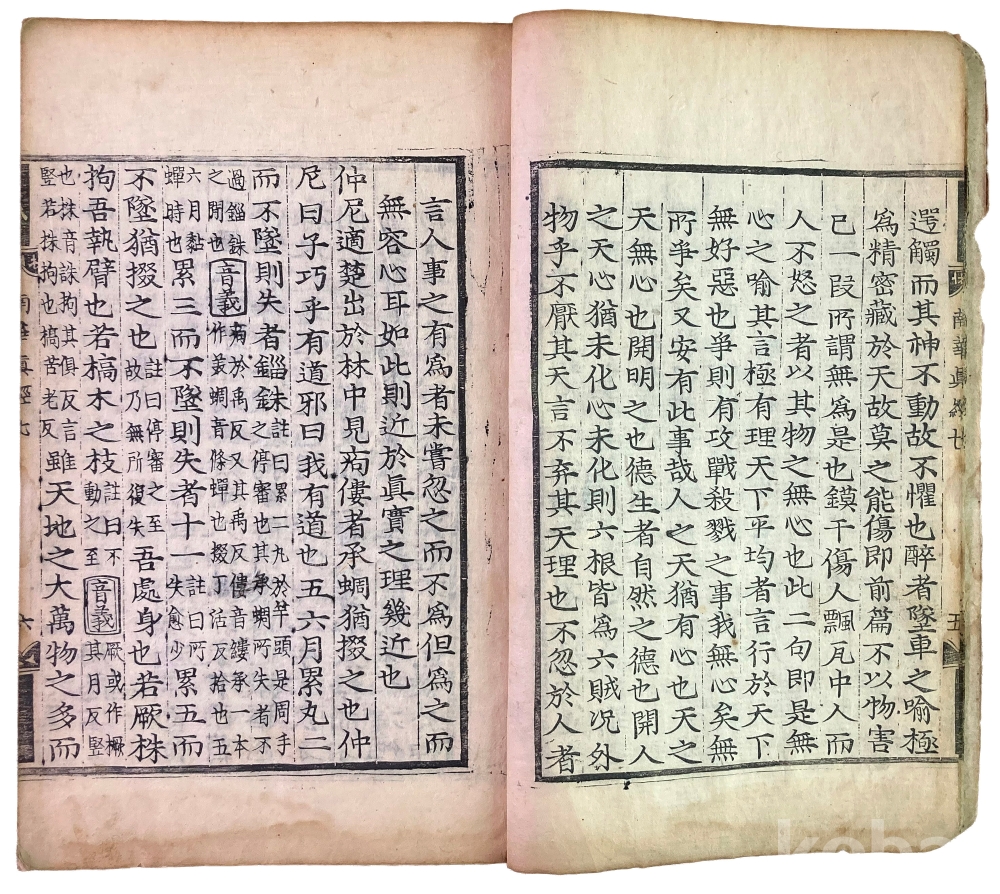 南華眞經七 五
遻觸而其神不動故不懼也醉者墜車之喻極
爲精密藏於天故莫之能傷即前篇不以物害
己一段所謂無爲是也鏌干傷人飄瓦中人而
人不怒之者以其物之無心也此二句即是無
心之喻其言極有理天下平均者言行於天下
無好惡也爭則有攻戰殺戮之事我無心矣無
所爭矣又安有此事哉人之天猶有心也天之
天無心也開明之也德生者自然之德也開人
之天心猶未化心未化則六根皆爲六賊况外
物乎不厭其天言不弃其天理也不忽於人者
言人事之有爲者未嘗忽之而不爲但爲之而
無容心耳如此則近於眞實之理幾近也
仲尼適楚出於林中見痀僂者承蜩猶掇之也仲
尼曰子巧乎有道邪曰我有道也五六月累丸二
而不墜則失者錙銖註曰累二丸於竿頭是周手之停審也其承蜩所失者不
過錙銖之間也音義痀於禹反又其禹反僂音縷承一本作美蜩音條蟬也掇丁活反拾也五
六月黏蟬時也累三而不墜則失者十一註曰所失愈少累五而
不墜猶掇之也註曰停審之至故乃無所復失吾處身也若厥株
拘吾執臂也若槁木之枝註曰不動之至音義厥或作橛其月反竪
也株音誅拘其俱反言竪若株拘也槁苦老反雖天地之大萬物之多而
南華眞經七 六
koba